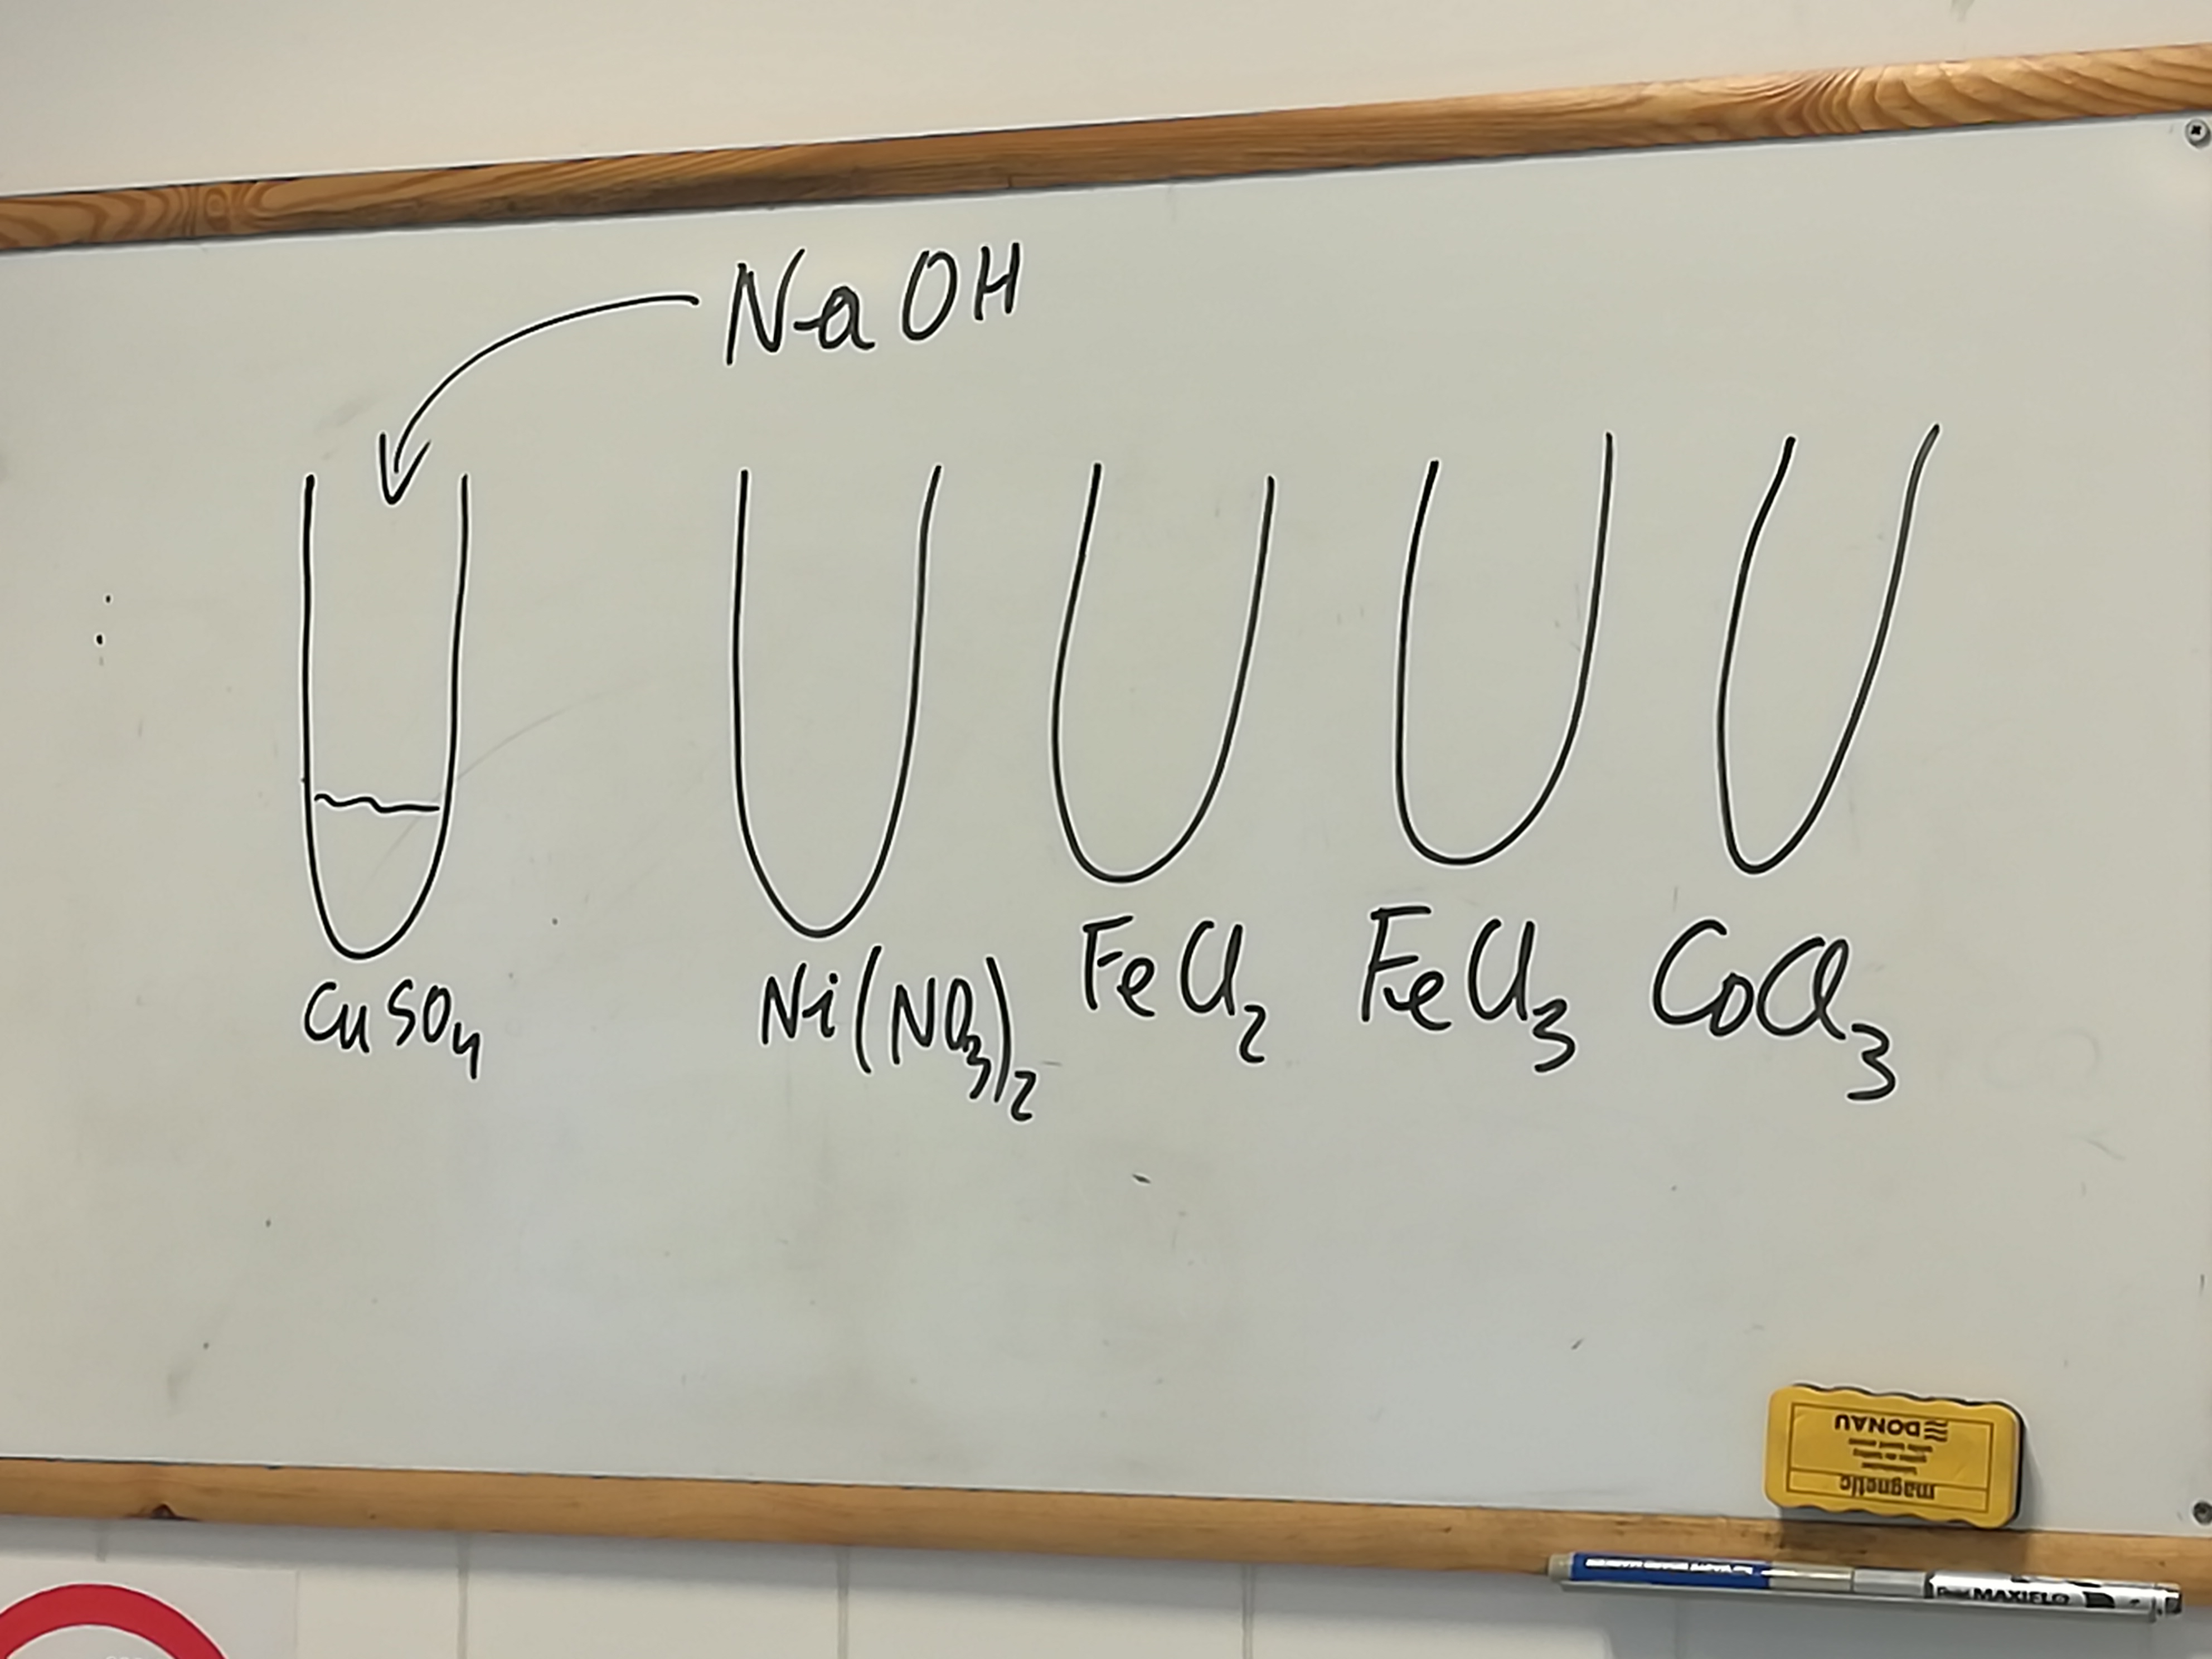 NaOH
CuSO4
Ni(NO3)2
FeCl2
FeCl3
CoCl3
DONAU
magnetic
MAXIFLO